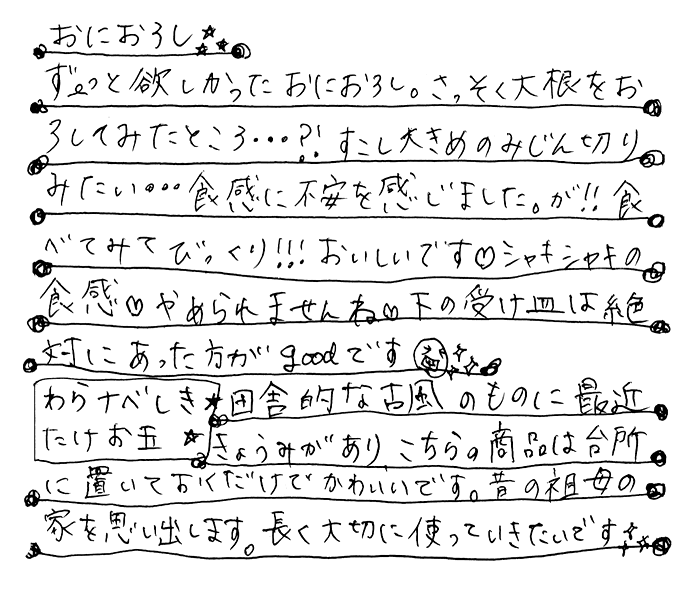 おにおろし
ずーっと欲しかったおにおろし。さっそく大根をお
ろしてみたところ…?!すこし大きめのみじん切り
みたい…食感に不安を感じました。が!!食
べてみてびっくり!!!おいしいです♡シャキシャキの
食感♡やめられませんね♡下の受け皿は絶
対にあった方がgoodです
わらナベしき
たけお玉
田舎的な古風のものに最近
きょうみがあり こちらの商品は台所
に置いておくだけでかわいいです。昔の祖母の
家を思い出します。長く大切に使っていきたいです